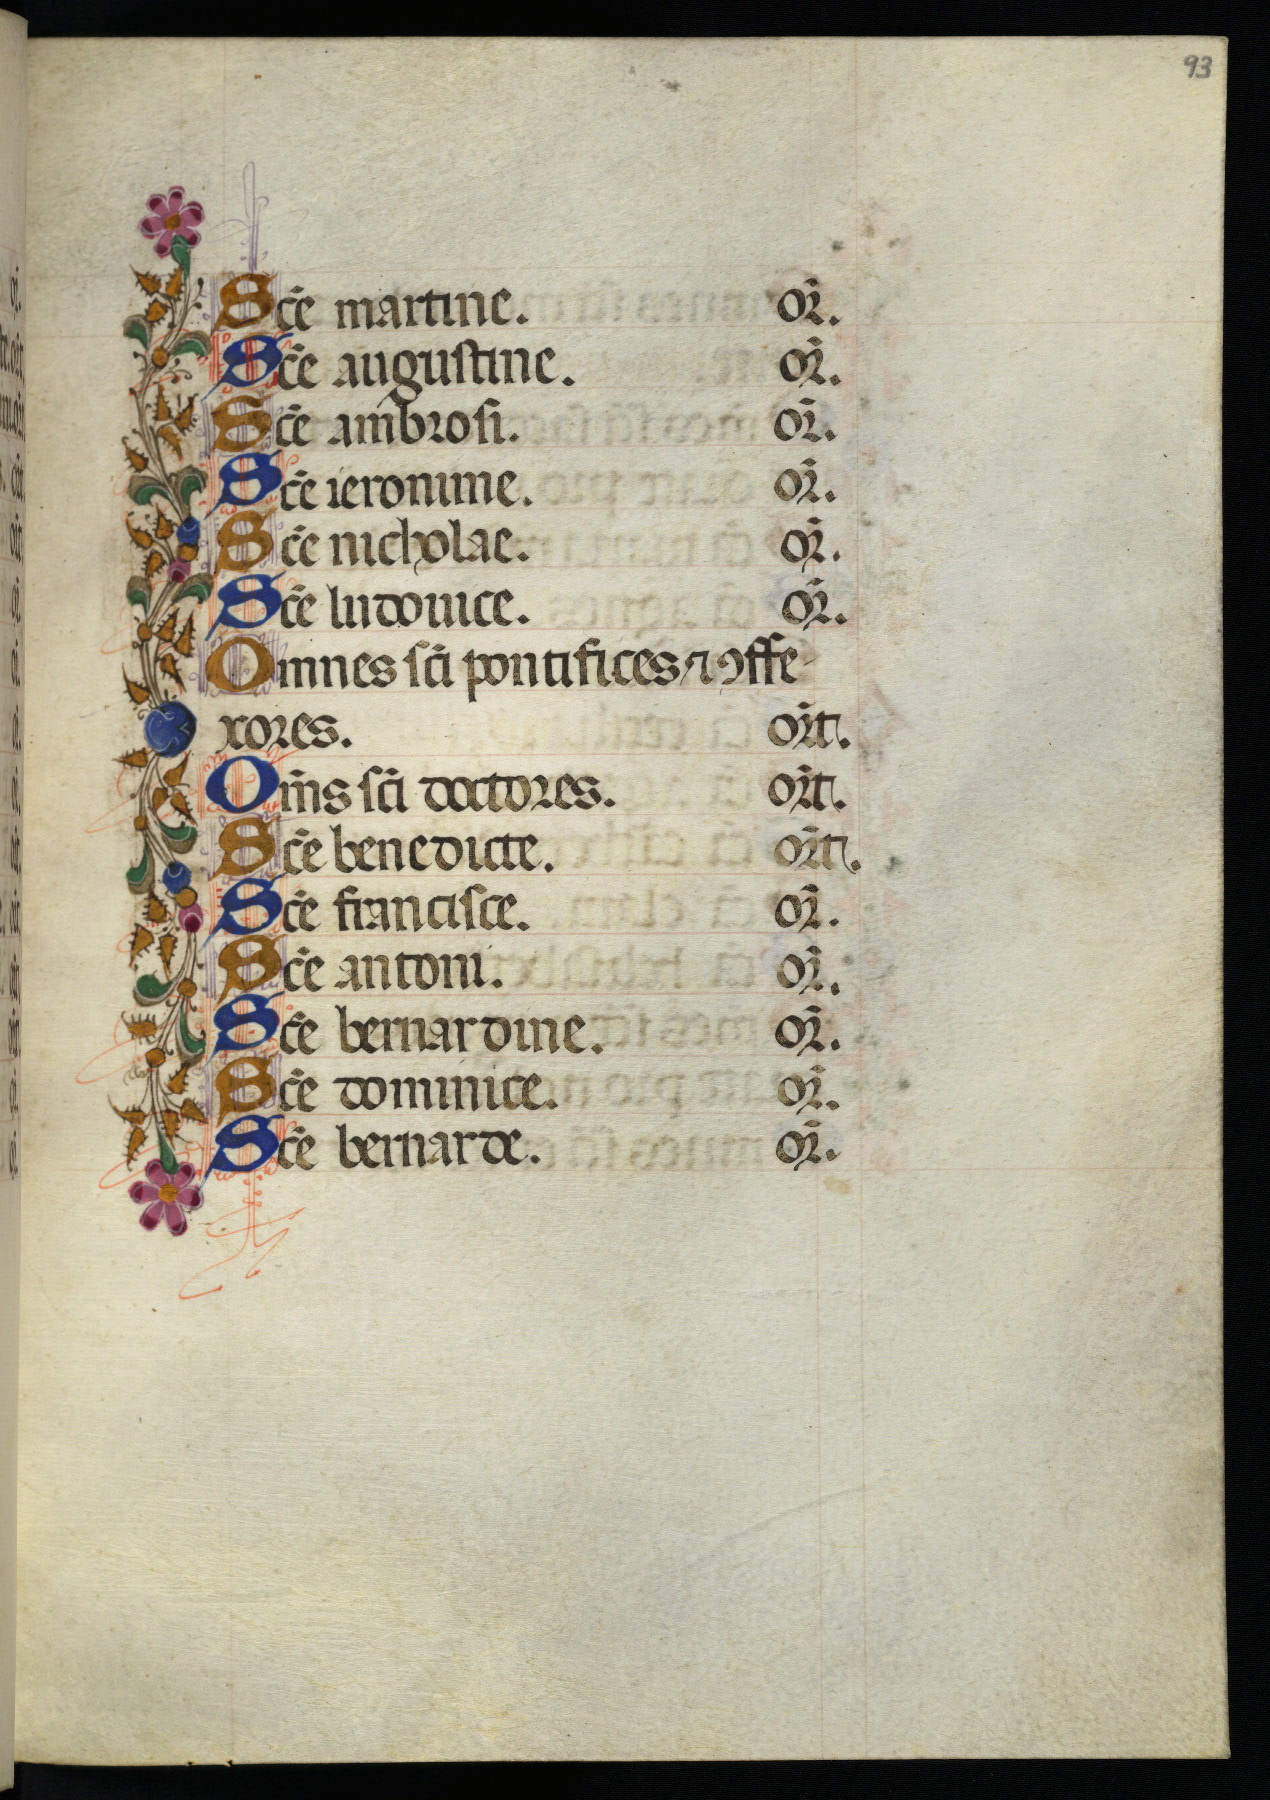 93
Sc̄e martine. or̄.
Sc̄e augustine. or̄.
Sc̄e ambrosi. or̄.
Sc̄e ieronime. or̄.
Sc̄e nicholae. or̄.
Sc̄e ludouice. or̄.
Omnes sc̄i pontifices ⁊ ꝯffe
xores. or̄t.
Om̄s sc̄i doctores. or̄t.
Sc̄e benedicte. or̄t.
Sc̄e francisce. or̄.
Sc̄e antoni. or̄.
Sc̄e bernardine. or̄.
Sc̄e dominice. or̄.
Sc̄e bernarde. or̄.